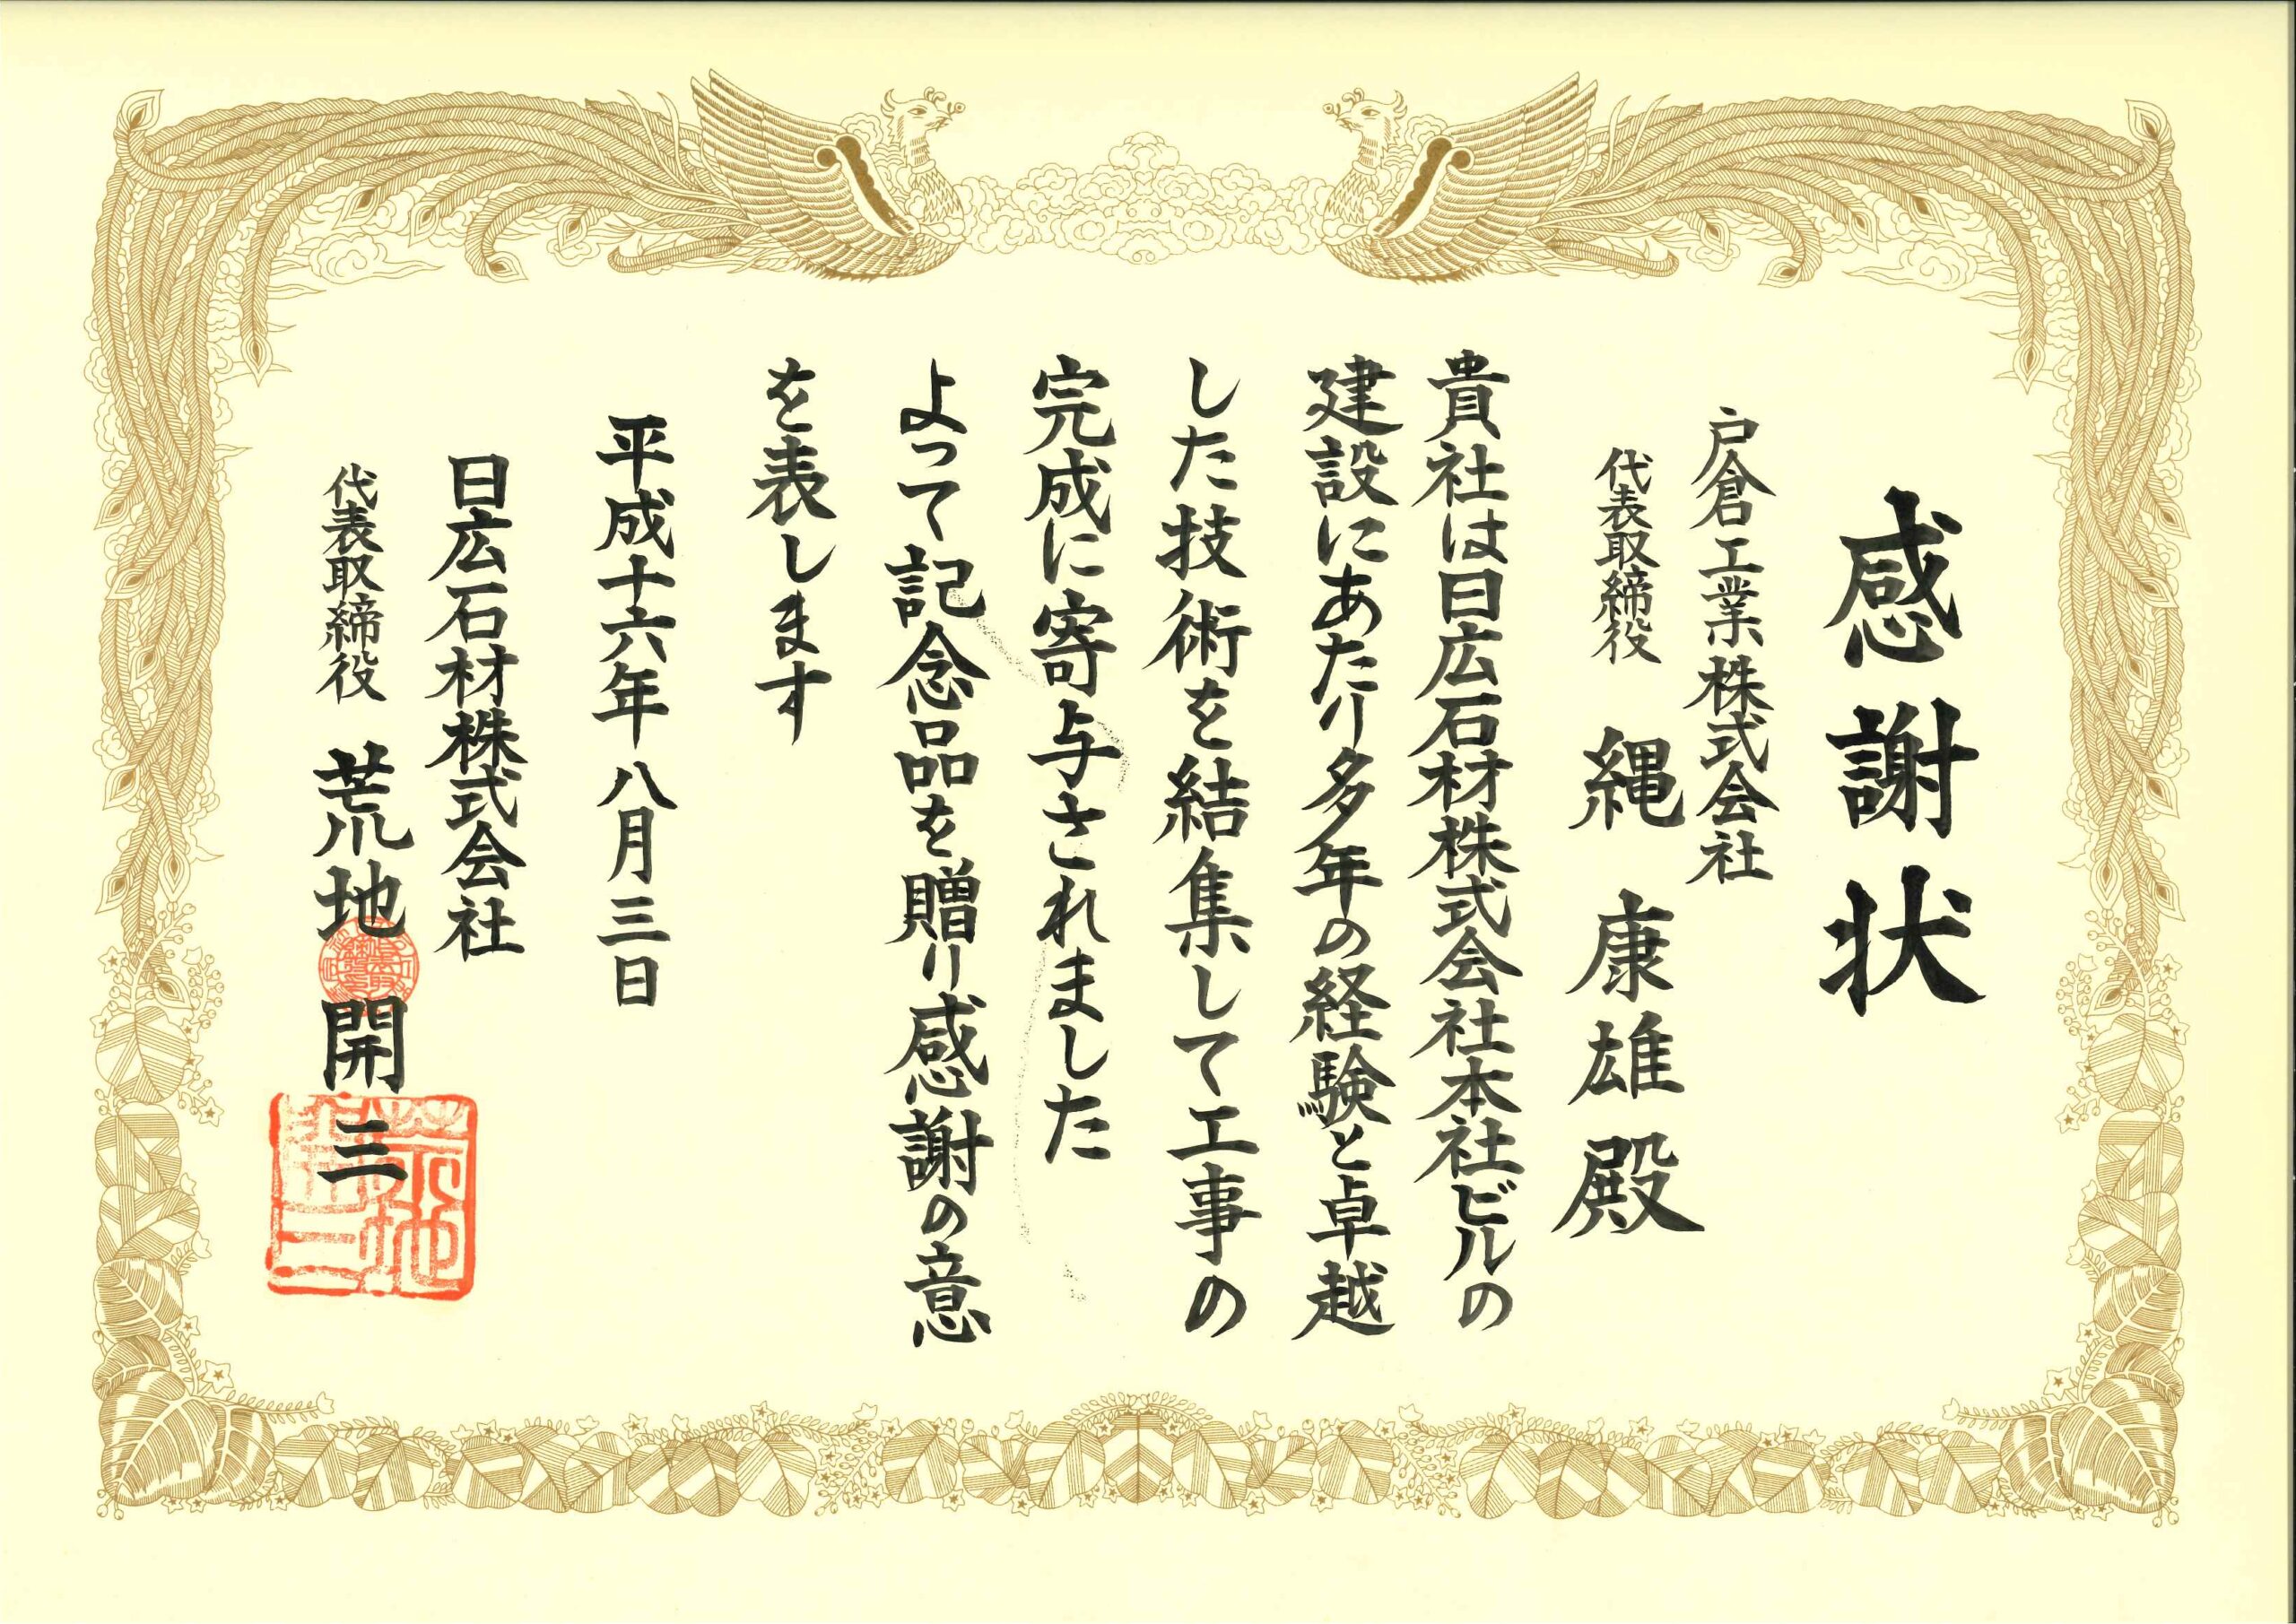 感謝状
戸倉工業株式会社
代表取締役 縄 康雄 殿
貴社は日広石材株式会社本社ビルの
建設にあたり多年の経験と卓越
した技術を結集して工事の
完成に寄与されました
よって記念品を贈り感謝の意
を表します
平成十六年八月三日
日広石材株式会社
代表取締役 荒地開三